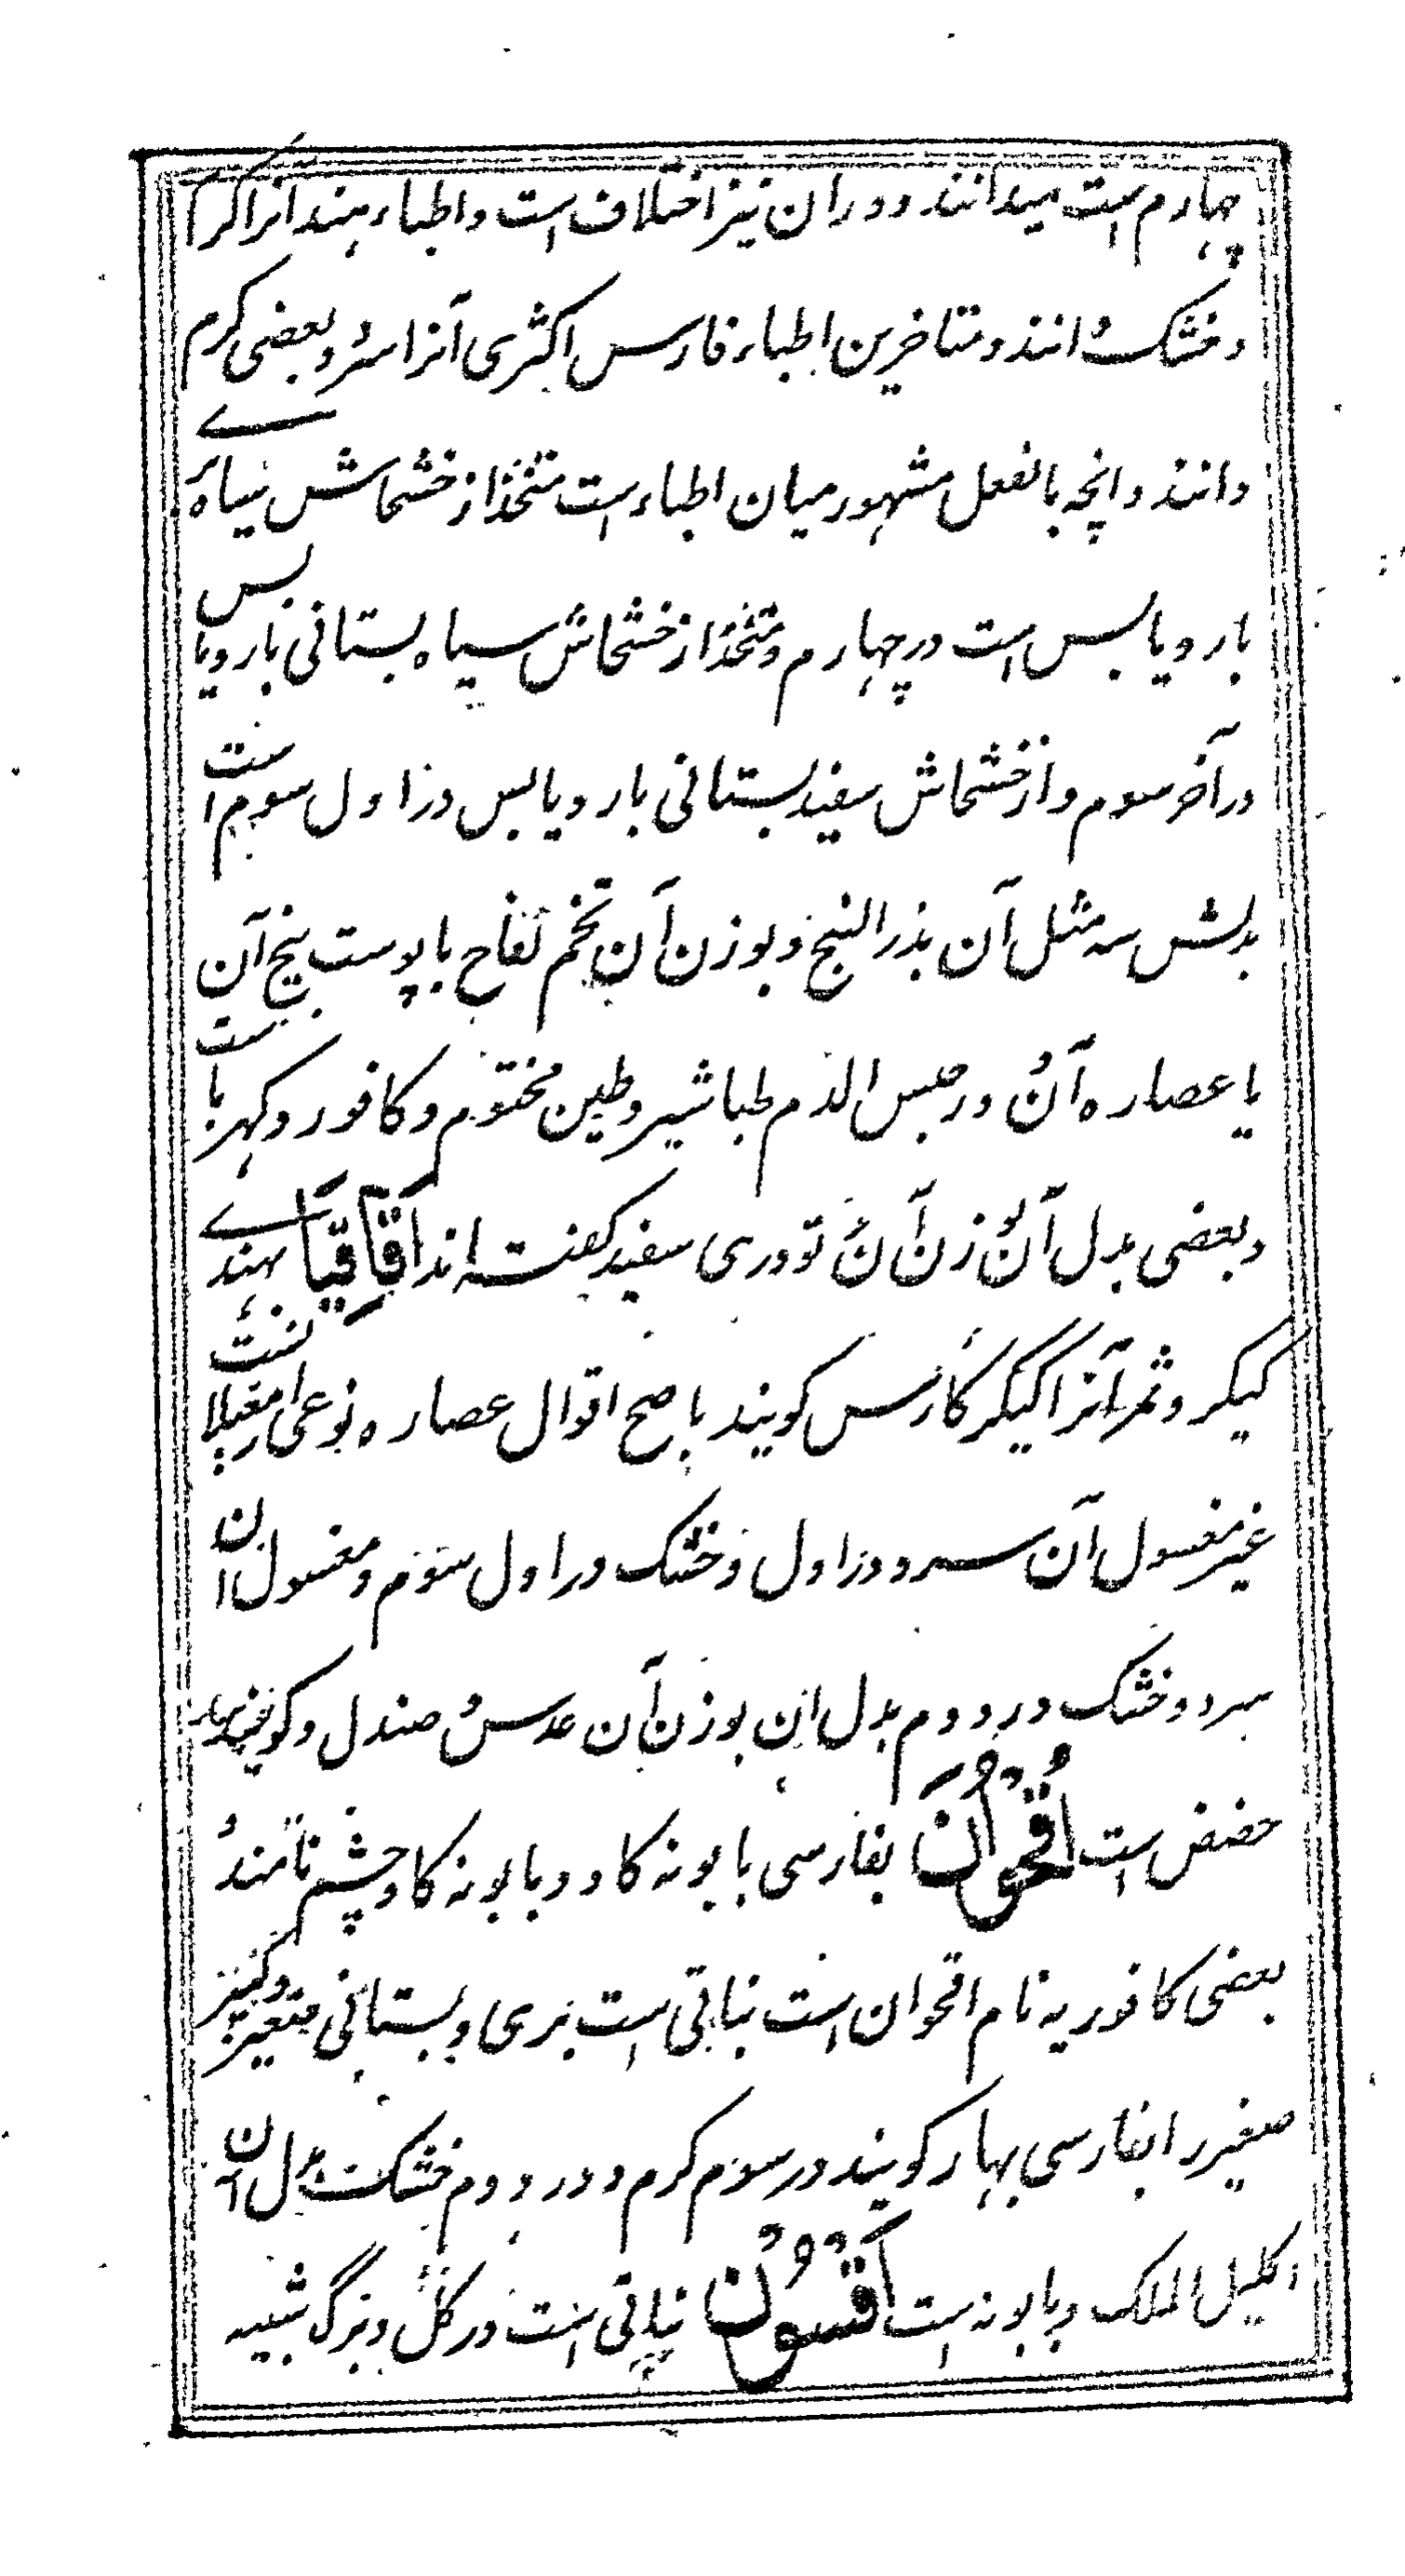 چهارم است میدانند و دران نیز اختلاف است و اطباء هند انرا کرم
و خشک دانند و متاخرین اطباء فارس اکثری آنرا سرد و بعضی کرم
دانند و انچه بالفعل مشهور میان اطباء است متخذ از خشخاش سیاه بری
بارد و یابس است در چهارم و متخذ از خشخاش سیاه بستانی بارد و یابس
در آخر سوم و از خشخاش سفید بستانی بارد و یابس در اول سوم است
بدلش سه مثل آن بذر البنج و بوزن آن تخم تفاح با پوست بیخ آن
یا عصاره آن و در حبس الدم طباشیر و طین مختوم و کافور و کهربا ست
و بعضی بدل آن بوزن آن تودری سفید کفته اند اَقَاقِیَا بهندے
کیکر و ثمر آنرا کیکر کارس کویند باصح اقوال عصاره نوعی از مغیلا نست
غیر مغسول آن سرد در اول و خشک در اول سوم و مغسول ان
سرد و خشک در دوم بدل ان بوزن آن عدس و صندل و کویند
حضض است اُقْحُوَان بفارسی بابونه کاو و بابونه کاو چشم نامند و
بعضی کافوریه نام اقحوان است نباتی است بری و بستانی صغیر و کبیر
صغیر را بفارسی بهار کویند در سوم کرم و در دوم خشک بدل آن
اکلیل الملک و بابونه است اَقْسُون نباتی است در کل و برگ شبیه